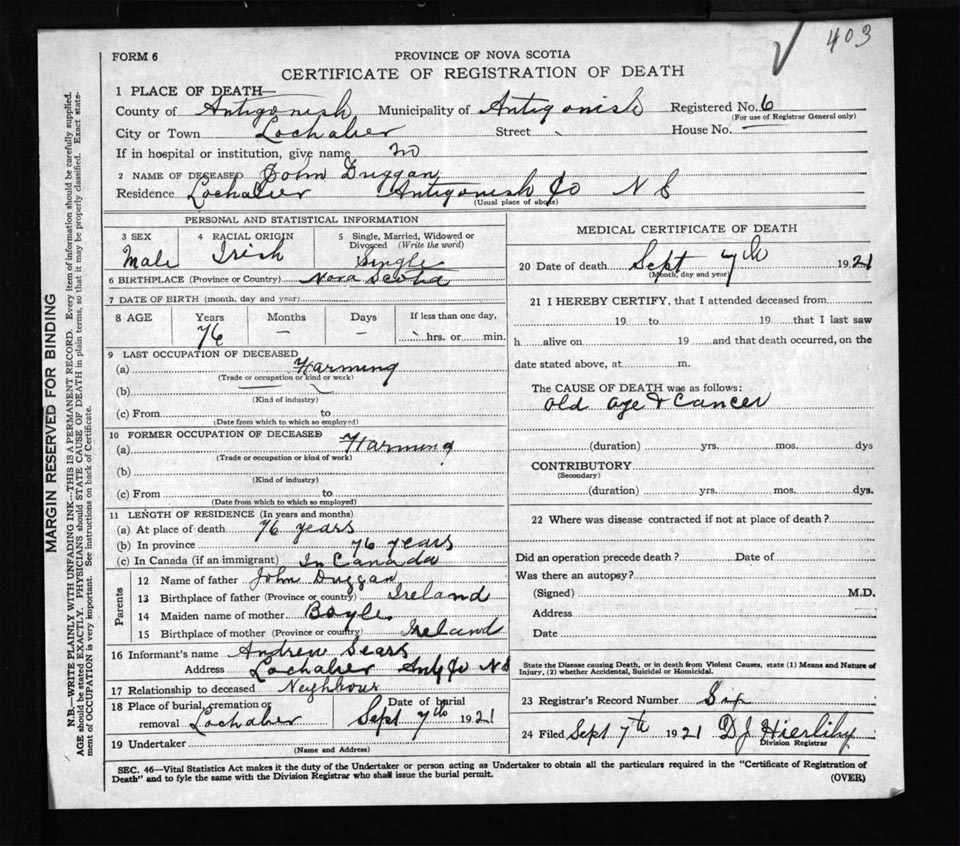 403
FORM 6
PROVINCE OF NOVA SCOTIA
CERTIFICATE OF REGISTRATION OF DEATH
1 PLACE OF DEATH—
County of Antigonish Municipality of Antigonish Registered No. 6
(For use of Registrar General only)
City or Town Lochaber Street House No.
If in hospital or institution, give name no
2 NAME OF DECEASED John Duggan
Residence Lochaber Antigonish Co N S
(Usual place of abode)
PERSONAL AND STATISTICAL INFORMATION
3 SEX Male
4 RACIAL ORIGIN Irish
5 Single, Married, Widowed or Divorced (Write the word) Single
6 BIRTHPLACE (Province or Country) Nova Scotia
7 DATE OF BIRTH (month, day and year)
8 AGE Years Months Days If less than one day,
76 — — hrs. or min.
9 LAST OCCUPATION OF DECEASED
(a) Farming
(Trade or occupation or kind or work)
(b)
(Kind of industry)
(c) From to
(Date from which to which so employed)
10 FORMER OCCUPATION OF DECEASED
(a) Farming
(Trade or occupation or kind of work)
(b)
(Kind of industry)
(c) From to
(Date from which to which so employed)
11 LENGTH OF RESIDENCE (In years and months)
(a) At place of death 76 years
(b) In province 76 years
(c) In Canada (if an immigrant) In Canada
Parents
12 Name of father John Duggan
13 Birthplace of father (Province or country) Ireland
14 Maiden name of mother Boyle
15 Birthplace of mother (Province or country) Ireland
16 Informant's name Andrew Sears
Address Lochaber Antg Co N S
17 Relationship to deceased Neighbour
18 Place of burial, cremation or removal Lochaber Date of burial Sept 7th 1921
19 Undertaker
(Name and Address)
MEDICAL CERTIFICATE OF DEATH
20 Date of death Sept 7th 1921
(Month, day and year)
21 I HEREBY CERTIFY, that I attended deceased from
19 to 19 that I last saw
h alive on 19 and that death occurred, on the
date stated above, at m.
The CAUSE OF DEATH was as follows:
Old age & Cancer
(duration) yrs. mos. dys
CONTRIBUTORY
(Secondary)
(duration) yrs. mos. dys.
22 Where was disease contracted if not at place of death?
Did an operation precede death? Date of
Was there an autopsy?
(Signed) M.D.
Address
Date
State the Disease causing Death, or in death from Violent Causes, state (1) Means and Nature of
Injury, (2) whether Accidental, Suicidal or Homicidal.
23 Registrar's Record Number Six
24 Filed Sept 7th 1921 D.J. Hierlihy
Division Registrar
SEC. 46—Vital Statistics Act makes it the duty of the Undertaker or person acting as Undertaker to obtain all the particulars required in the "Certificate of Registration of
Death" and to fyle the same with the Division Registrar who shall issue the burial permit.
(OVER)
MARGIN RESERVED FOR BINDING
N.B.—WRITE PLAINLY WITH UNFADING INK—THIS IS A PERMANENT RECORD. Every item of information should be carefully supplied.
AGE should be stated EXACTLY. PHYSICIANS should STATE CAUSE OF DEATH in plain terms, so that it may be properly classified. Exact state-
ment of OCCUPATION is very important. See instructions on back of Certificate.